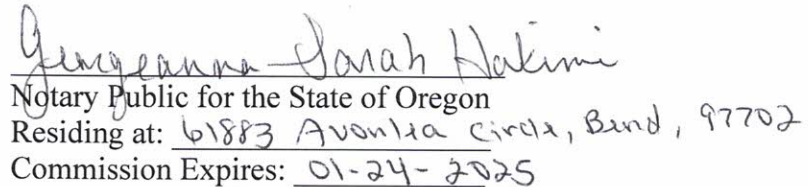 Georgeanna Sarah Hakimi
Notary Public for the State of Oregon
Residing at: 61883 Avonlea Circle, Bend, 97702
Commission Expires: 01-24-2025